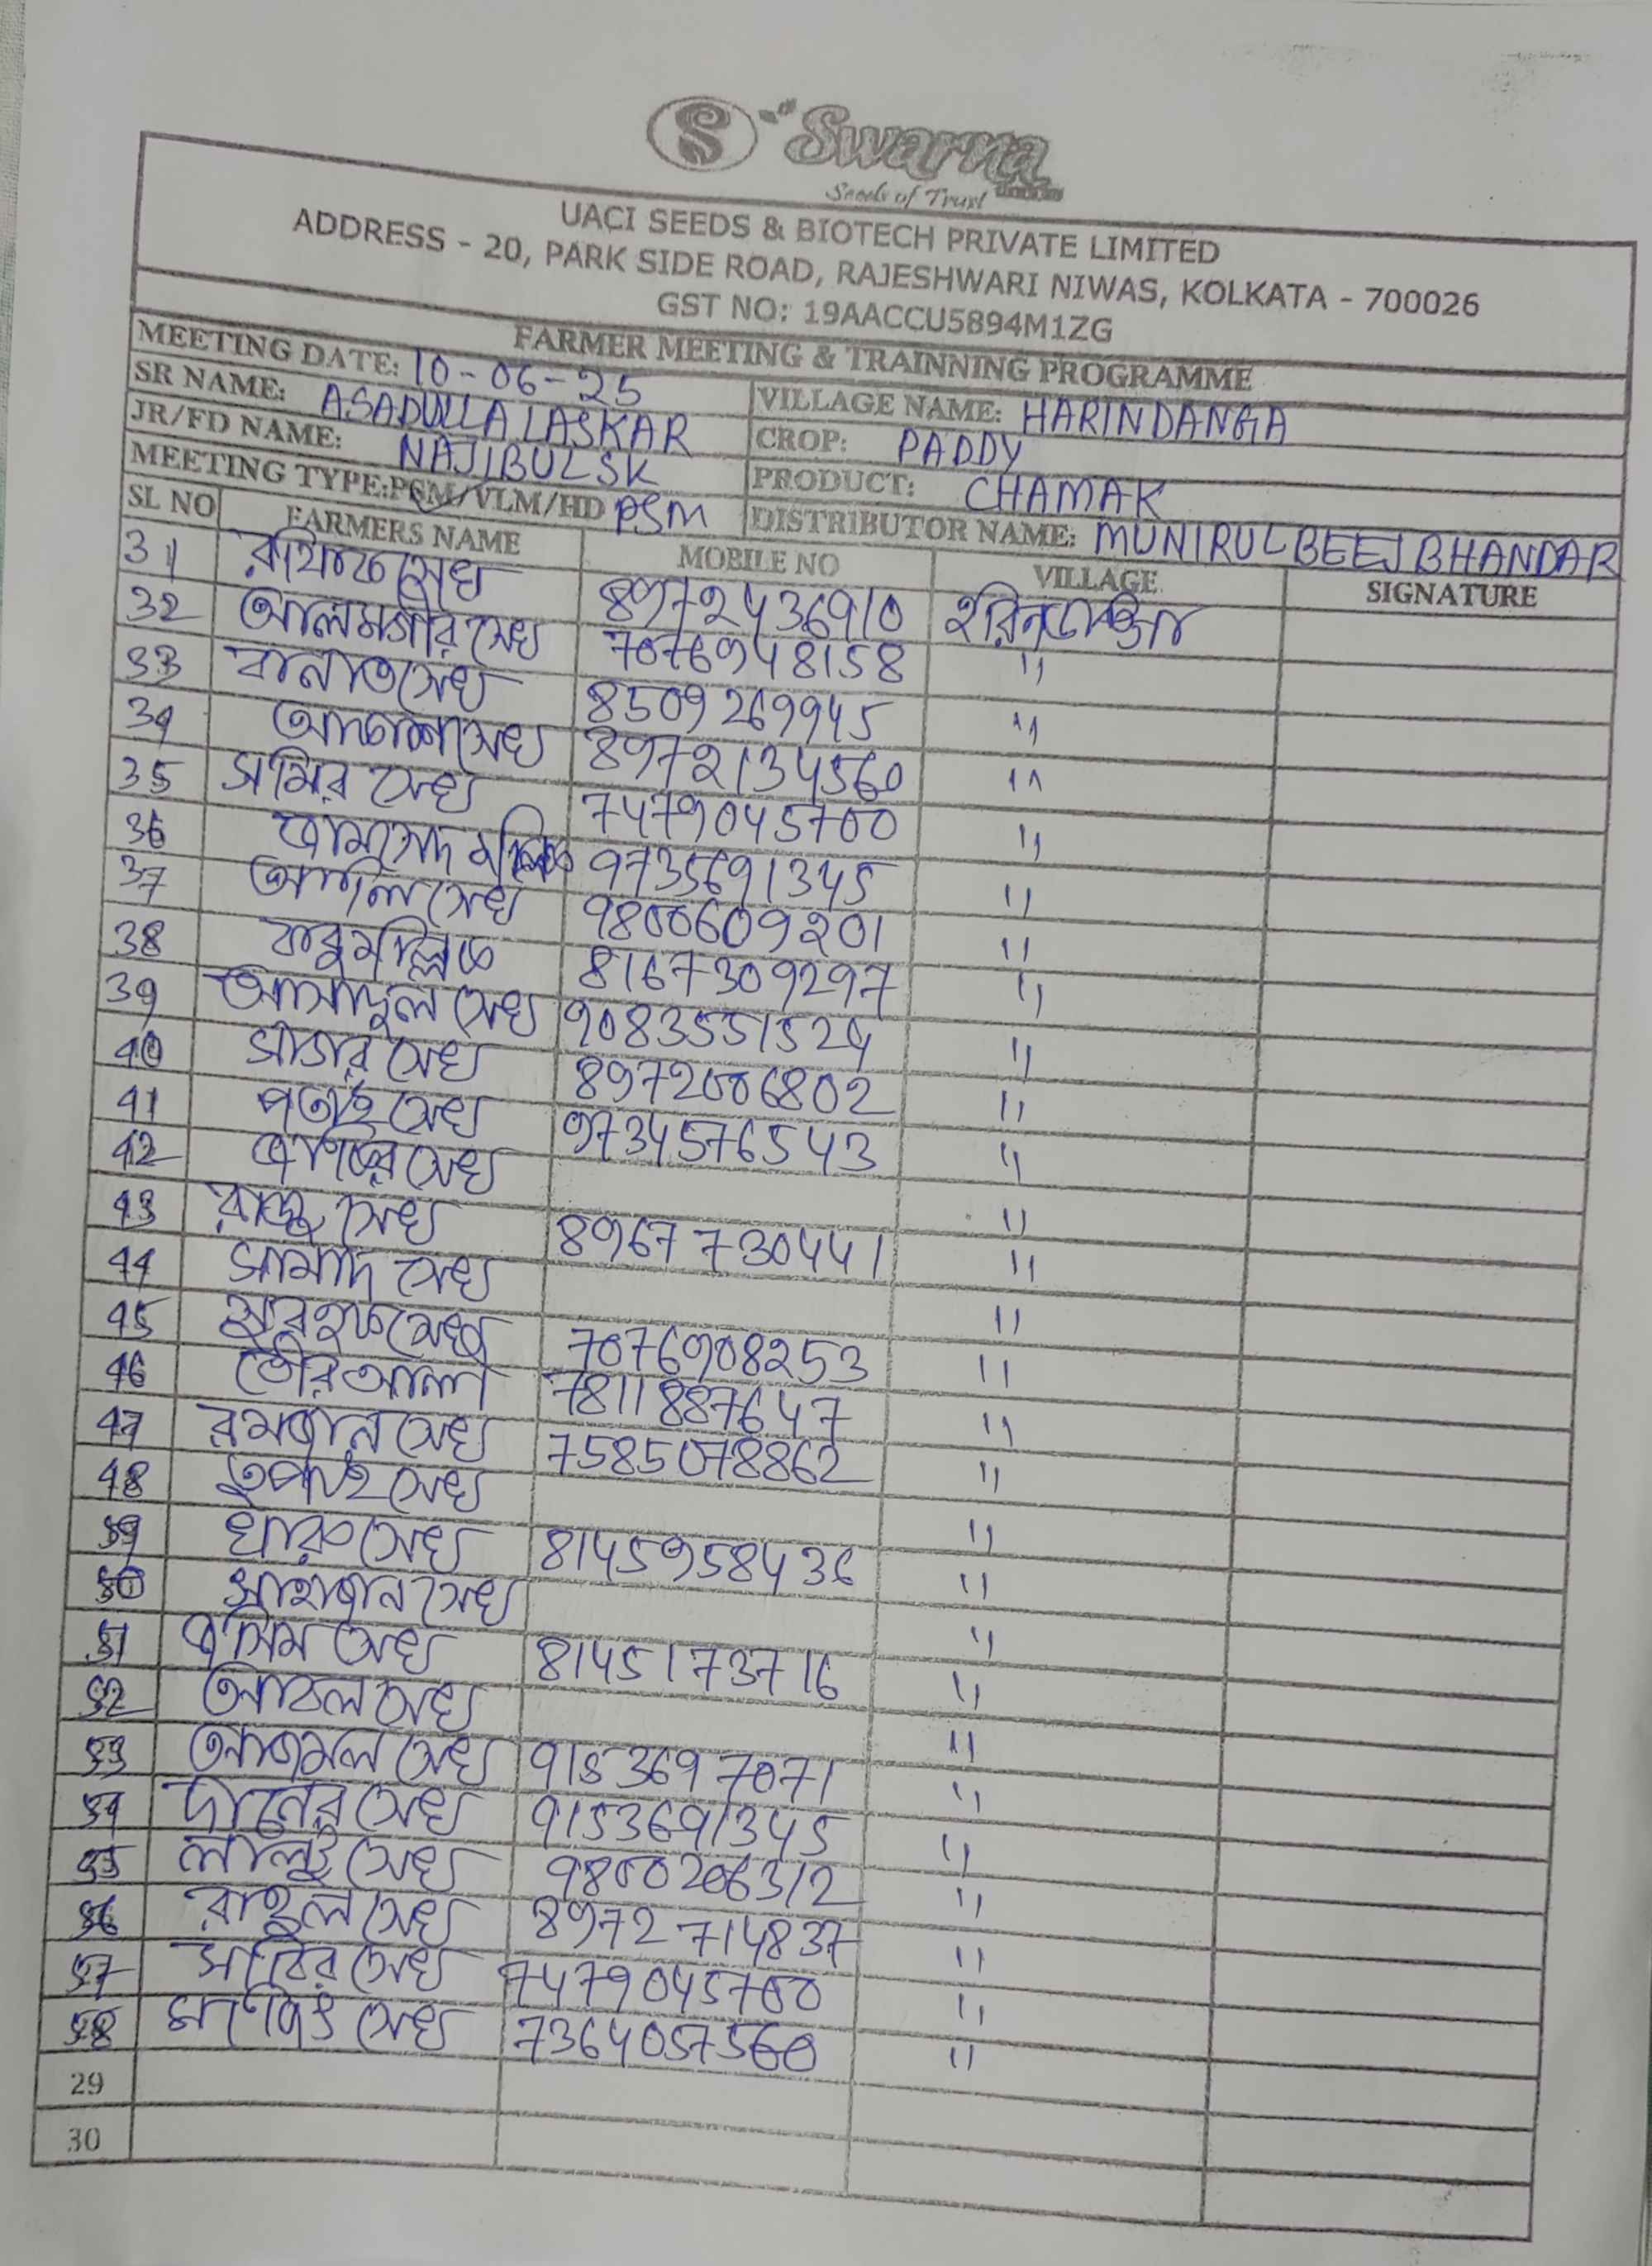 Swarna
Seeds of Trust
UACI SEEDS & BIOTECH PRIVATE LIMITED
ADDRESS - 20, PARK SIDE ROAD, RAJESHWARI NIWAS, KOLKATA - 700026
GST NO: 19AACCU5894M1ZG
FARMER MEETING & TRAINNING PROGRAMME
MEETING DATE: 10-06-25 VILLAGE NAME: HARINDANGA
SR NAME: ASADULLA LASKAR CROP: PADDY
JR/FD NAME: NAJIBUL SK PRODUCT: CHAMAK
MEETING TYPE:PSM/VLM/HD PSM DISTRIBUTOR NAME: MUNIRUL BEEJ BHANDAR
SL NO FARMERS NAME MOBILE NO VILLAGE SIGNATURE
31 সেখ 8972436910 হরিনডাঙ্গা
32 আলমগীর সেখ 7076948158 "
33 সেখ 8509269945 "
34 আকাশ সেখ 8972134560 "
35 সমির সেখ 7479045700 "
36 মল্লিক 9735691345 "
37 সেখ 9800609201 "
38 মল্লিক 8167309297 "
39 আসাদুল সেখ 9083551524 "
40 সাগর সেখ 8972006802 "
41 সেখ 9734576543 "
42 সেখ "
43 রাজু সেখ 8967730441 "
44 সামাদ সেখ "
45 সেখ 7076908253 "
46 আলী 7811887647 "
47 রমজান সেখ 7585078862 "
48 সেখ "
59 সেখ 8145958436 "
50 সাহাজান সেখ "
51 জসিম সেখ 8145173716 "
52 সেখ "
53 আজমল সেখ 9153697071 "
54 সেখ 9153691345 "
55 লালু সেখ 9800206312 "
56 রাহুল সেখ 8972714837 "
57 সাবির সেখ 7479045700 "
58 সেখ 7364057560 "
29
30